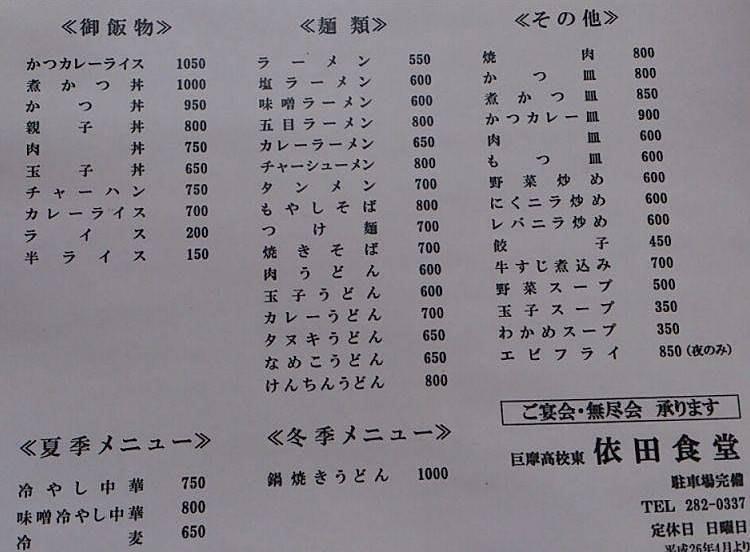 ≪御飯物≫
かつカレーライス 1050
煮かつ丼 1000
かつ丼 950
親子丼 800
肉丼 750
玉子丼 650
チャーハン 750
カレーライス 700
ライス 200
半ライス 150
≪麺類≫
ラーメン 550
塩ラーメン 600
味噌ラーメン 600
五目ラーメン 800
カレーラーメン 650
チャーシューメン 800
タンメン 700
もやしそば 800
つけ麺 700
焼きそば 700
肉うどん 600
玉子うどん 600
カレーうどん 700
タヌキうどん 650
なめこうどん 650
けんちんうどん 800
≪その他≫
焼肉 800
かつ皿 800
煮かつ皿 850
かつカレー皿 900
肉皿 600
もつ皿 600
野菜炒め 600
にくニラ炒め 600
レバニラ炒め 600
餃子 450
牛すじ煮込み 700
野菜スープ 500
玉子スープ 350
わかめスープ 350
エビフライ 850(夜のみ)
≪夏季メニュー≫
冷やし中華 750
味噌冷やし中華 800
冷麦 650
≪冬季メニュー≫
鍋焼きうどん 1000
ご宴会・無尽会 承ります
巨摩高校東 依田食堂
駐車場完備
TEL 282-0337
定休日 日曜日
平成26年4月より